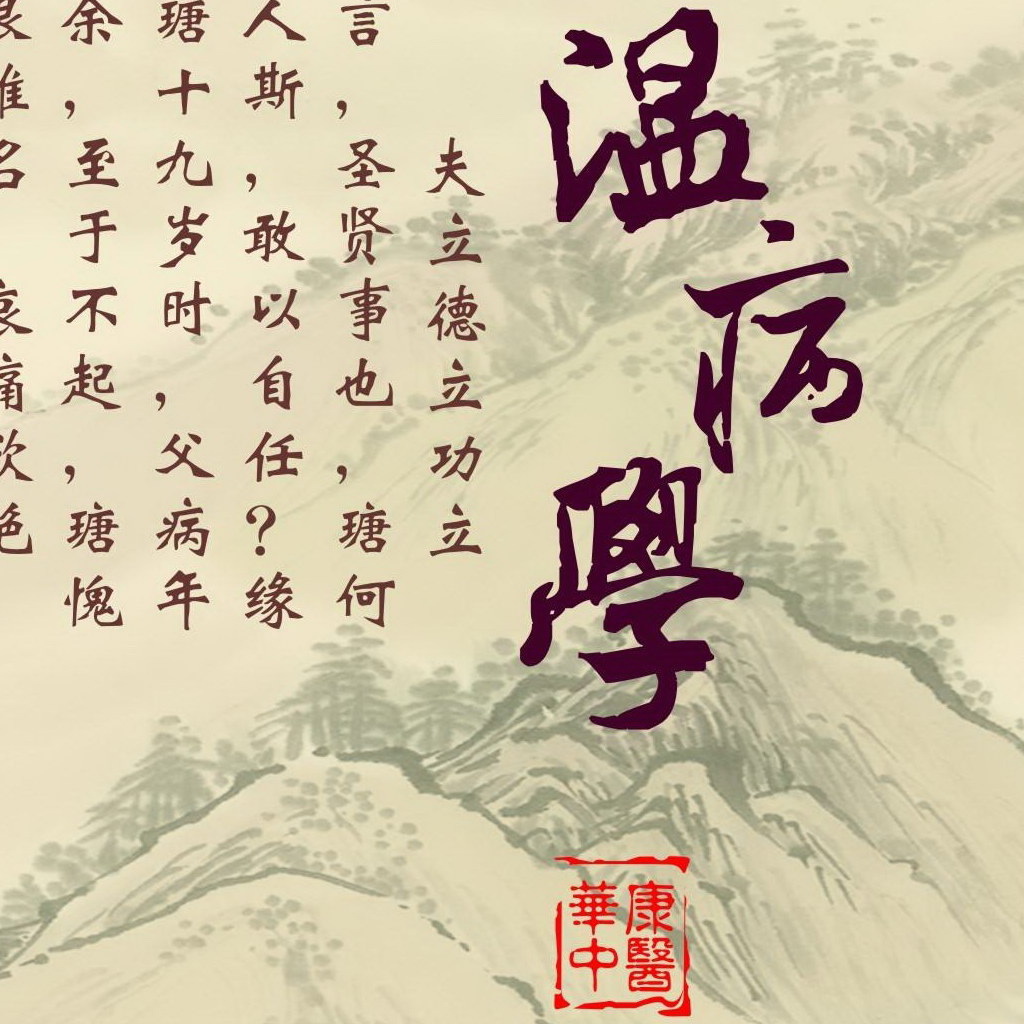 温病學
夫立德立功立
言，圣贤事也，瑭何
人斯，敢以自任？缘
瑭十九岁时，父病年
余，至于不起，瑭愧
康醫
華中